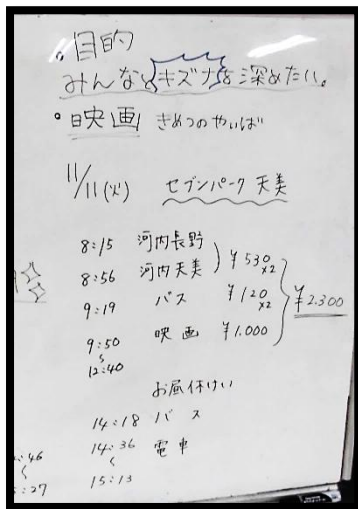 。目的
みんなとキズナを深めたい。
・映画 きめつのやいば
11/11(火) セブンパーク天美
8:15 河内長野
8:56 河内天美 ¥530×2
9:19 バス ¥120×2
¥2.300
9:50 映画 ¥1.000
〜
12:40
お昼休けい
14:18 バス
14:36 電車
〜
15:13
:46
〜
:27